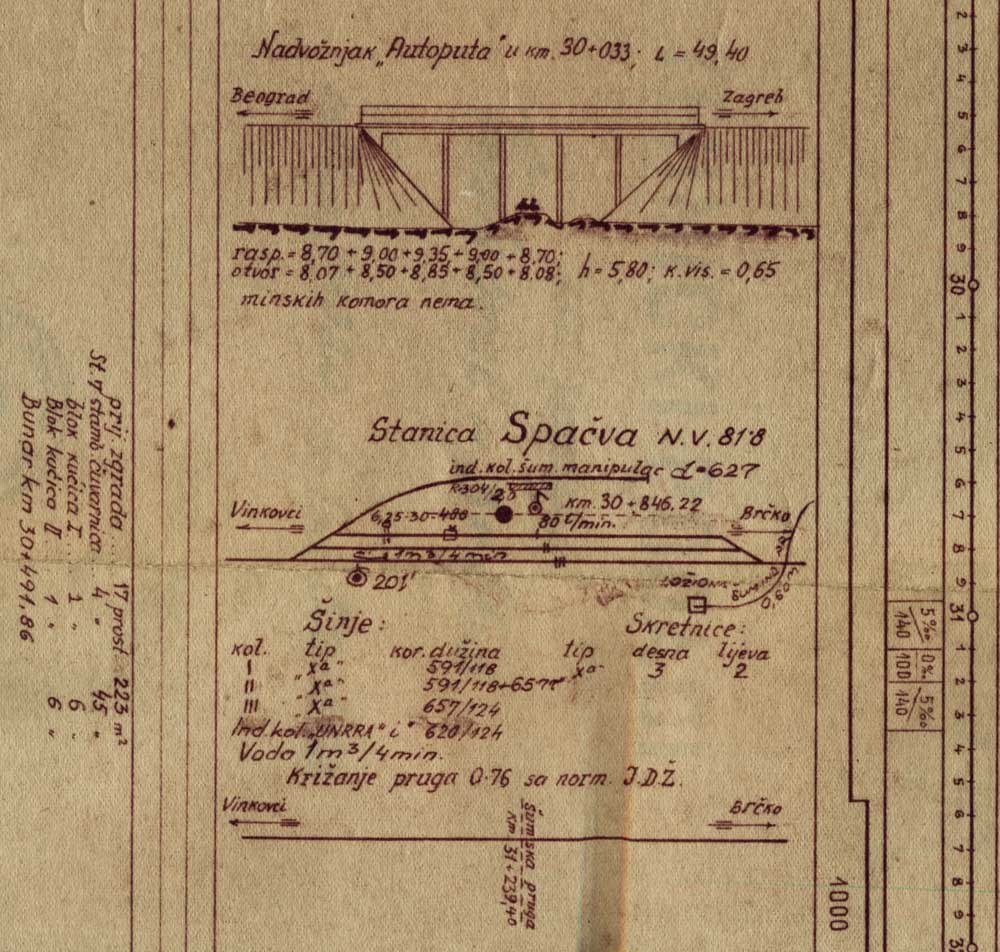 Nadvožnjak „Autoputa" u km. 30+033; L = 49,40
Beograd
Zagreb
rasp. = 8,70 + 9,00 + 9,35 + 9,00 + 8,70;
otvor = 8,07 + 8,50 + 8,85 + 8,50 + 8,08; h = 5,80; K.vis. = 0,65
minskih komora nema.
Stanica Spačva N.V. 81'8
ind. kol. šum. manipulac d=627
km. 30+846,22
Vinkovci
Brčko
1m³/4 min
201'
LOŽIONA
0,60m
Šinje:
Skretnice:
kol. tip kor. dužina tip desna lijeva
I " Xª " 591/118 Xª " 3 2
II " Xª " 591/118+657
III " Xª " 657/124
Ind. kol. „UNRRA" i" 620/124
Voda 1m³/4min.
Križanje pruga 0·76 sa norm. J.D.Ž.
Vinkovci
Brčko
Šumska pruga
km 31+239,40
prij. zgrada ... 17 prost 223 m²
4 " 45 "
blok kućica I ... 1 " 6 "
Blok kućica II 1 " 6 "
Bunar km 30+491,86
2
3
4
5
6
7
8
9
30
1
2
3
4
5
6
7
8
9
31
1
2
3
4
5
6
7
8
9
5‰ 140
0‰ 100
5‰ 140
1000